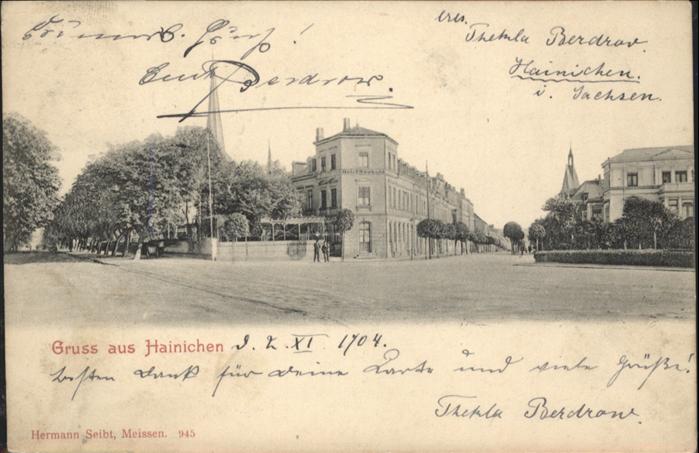 Erinnerb. Gruß!
Emil Berdrow.
eres.
Thekla Berdrow.
Hainichen.
i. Sachsen.
Gruss aus Hainichen d. 2. XI 1904.
besten Dank für deine Karte und viele Grüße!
Thekla Berdrow.
Hermann Seibt, Meissen. 945